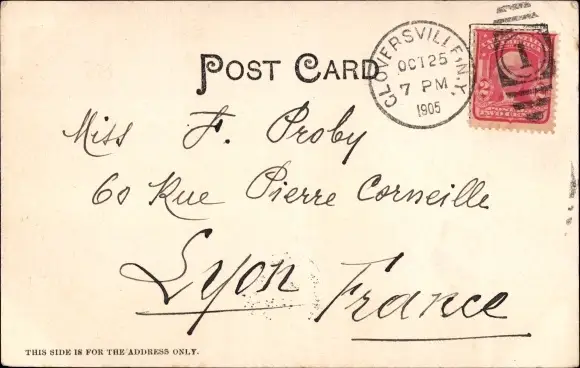 POST CARD
GLOVERSVILLE, N.Y.
OCT 25
7 PM
1905
1
2
Miss F. Proby
60 Rue Pierre Corneille
Lyon France
THIS SIDE IS FOR THE ADDRESS ONLY.